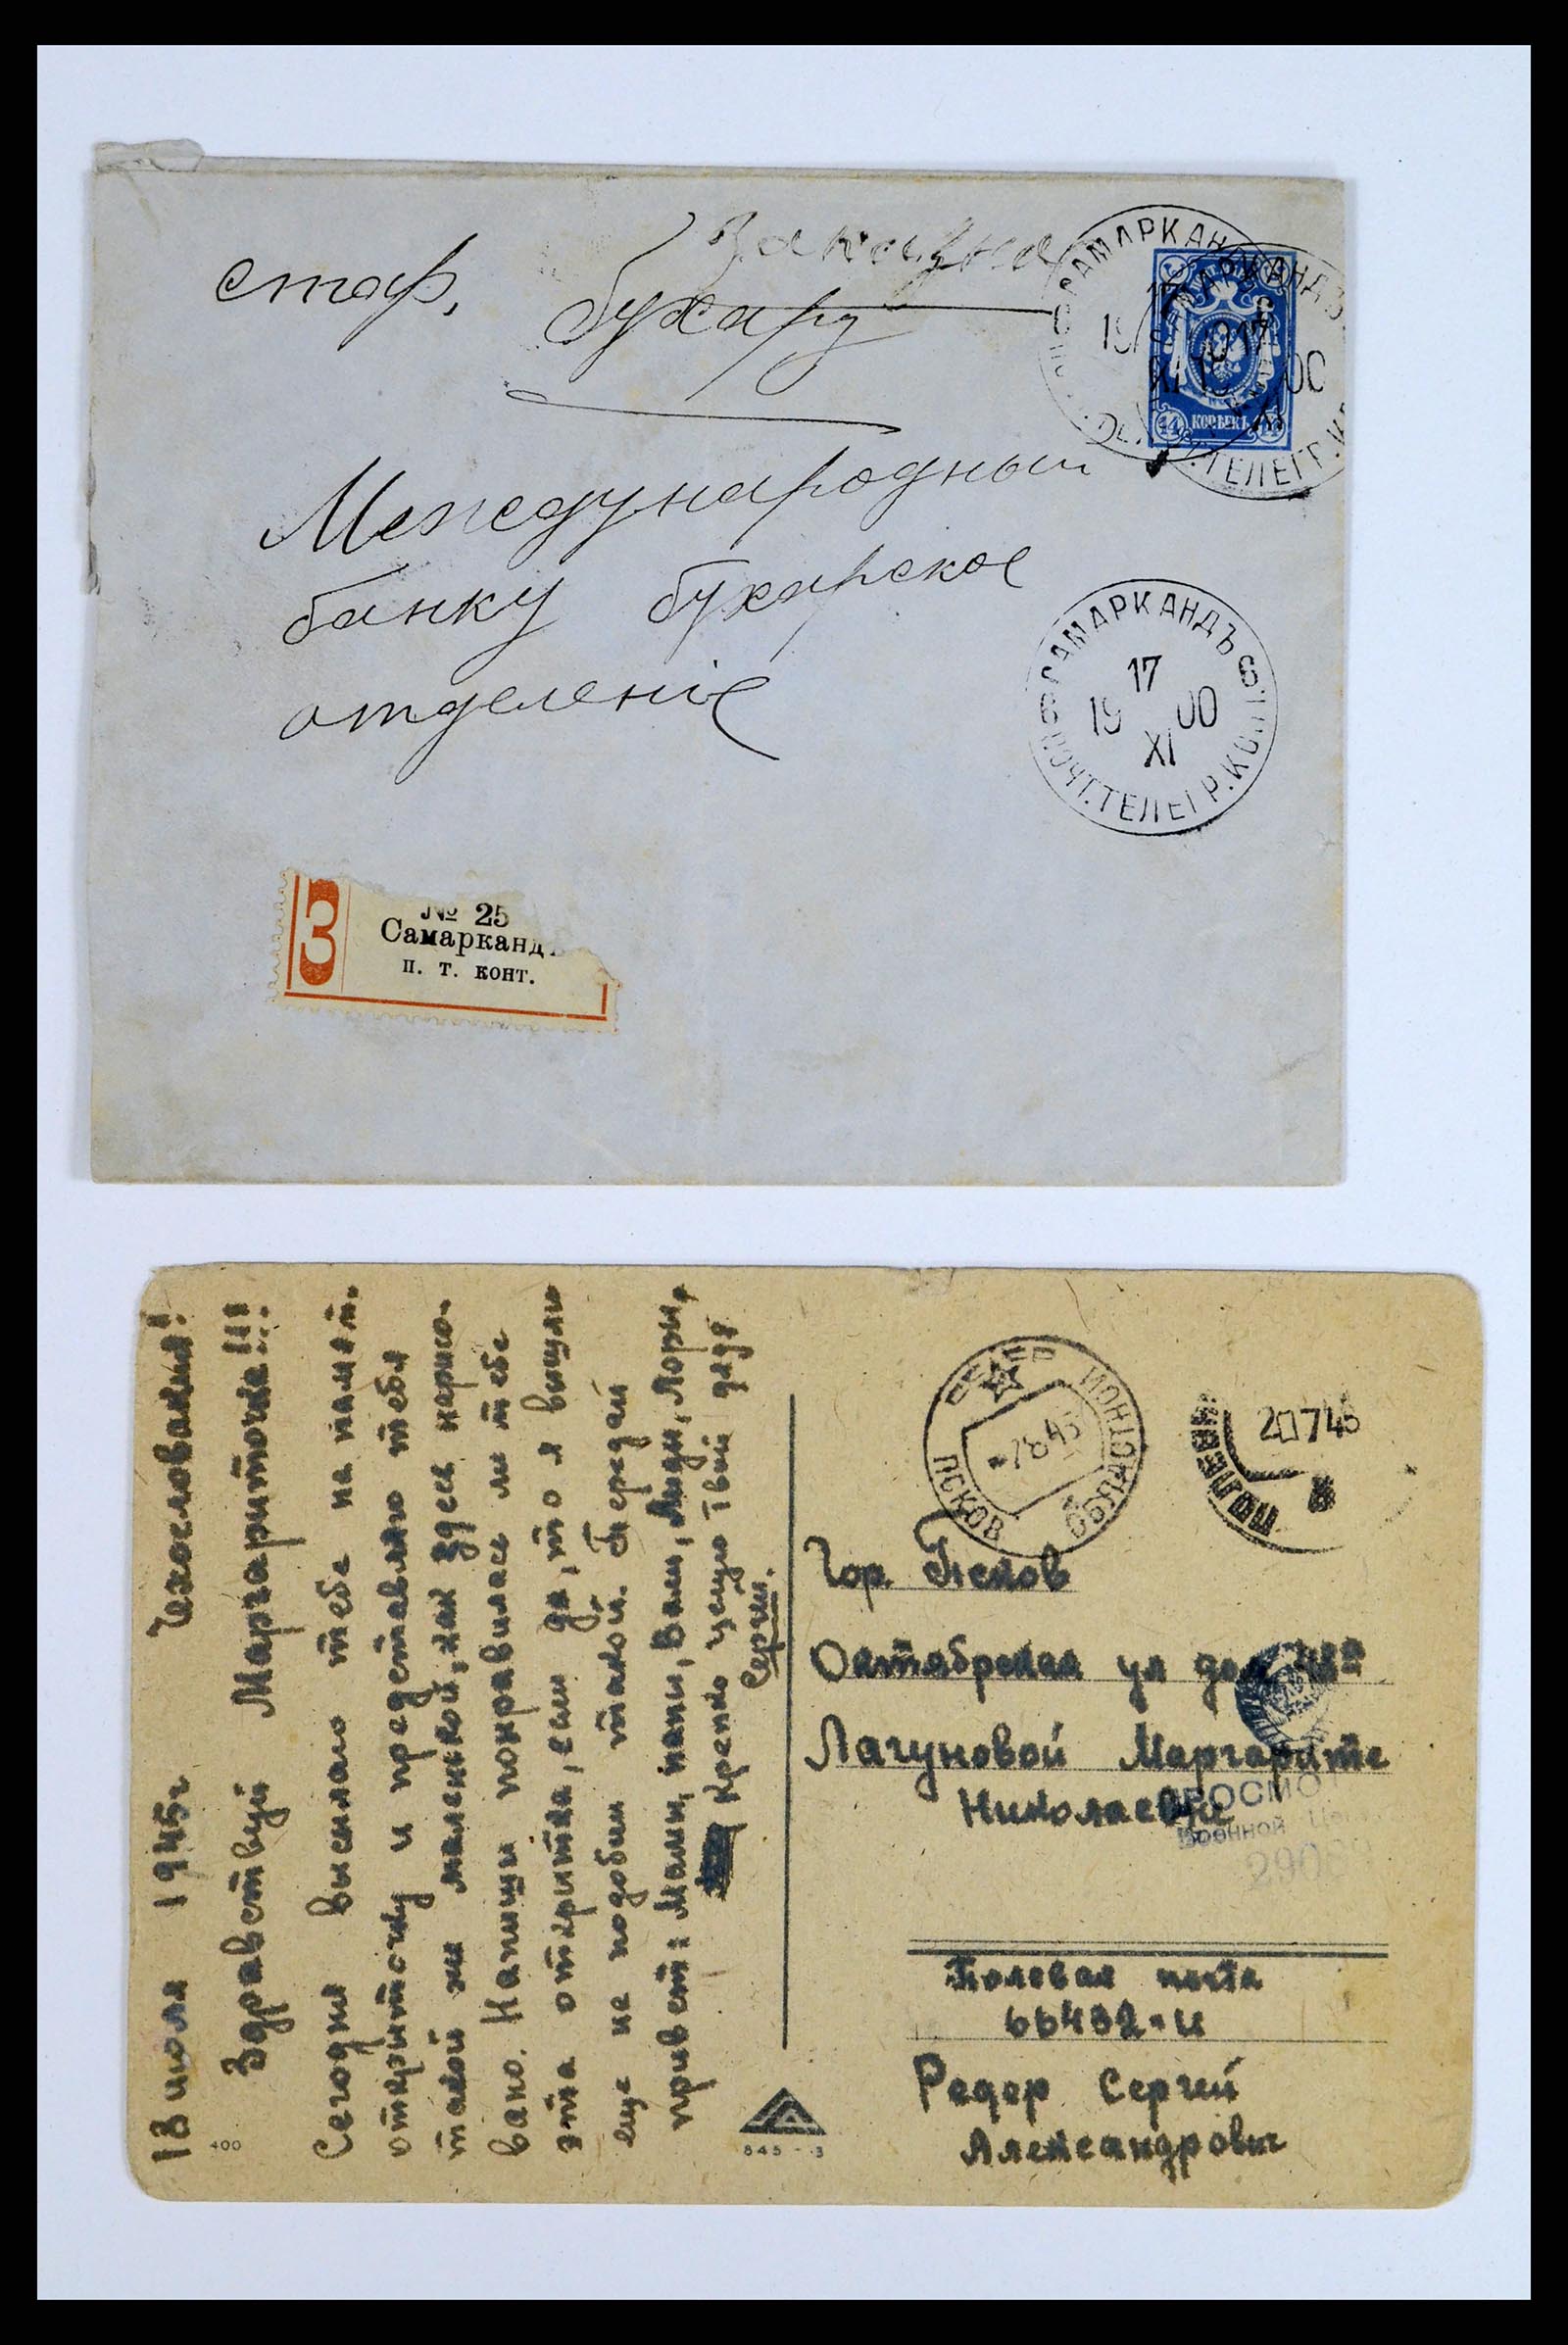 Заказное
стар. Бухару
Международный
банку бухарское
отделеніе
САМАРКАНДЪ
17
XI
ПОЧТ.ТЕЛЕГР.КОН
САМАРКАНДЪ
17
19 00
XI
ТЕЛЕГР.К
14 КОПѢЕКЪ 14
САМАРКАНДЪ 6
17
19 00
XI
6 ПОЧТ.ТЕЛЕГР.КОНТ.
З
№ 25
Самаркандъ
п. т. конт.
18 июля 1945г Чехословакия!
Здравствуй Маргариточка!!!
Сегодня высилаю тебе на памят.
откриточку и представляю тебя
такой же маленькой, как здесь нарисо-
вано. Напиши понравилась ли тебе
эта откритка, если да, то я вишлю
еще не подобии такой. Передай
привет: Мами, папи, Вали, Лиди, Лори,
Крепко целую твой дядя
Сергий.
400
845-3
ПСКОВ
-7845
20745
ПОЛЕВАЯ
Гор. Псков
Октябрская ул дом
Лагуновой Маргарите
Николаевне
ПРОСМО
Военной Це
290
Полевая почта
66432-И
Редер Сергий
Александрович